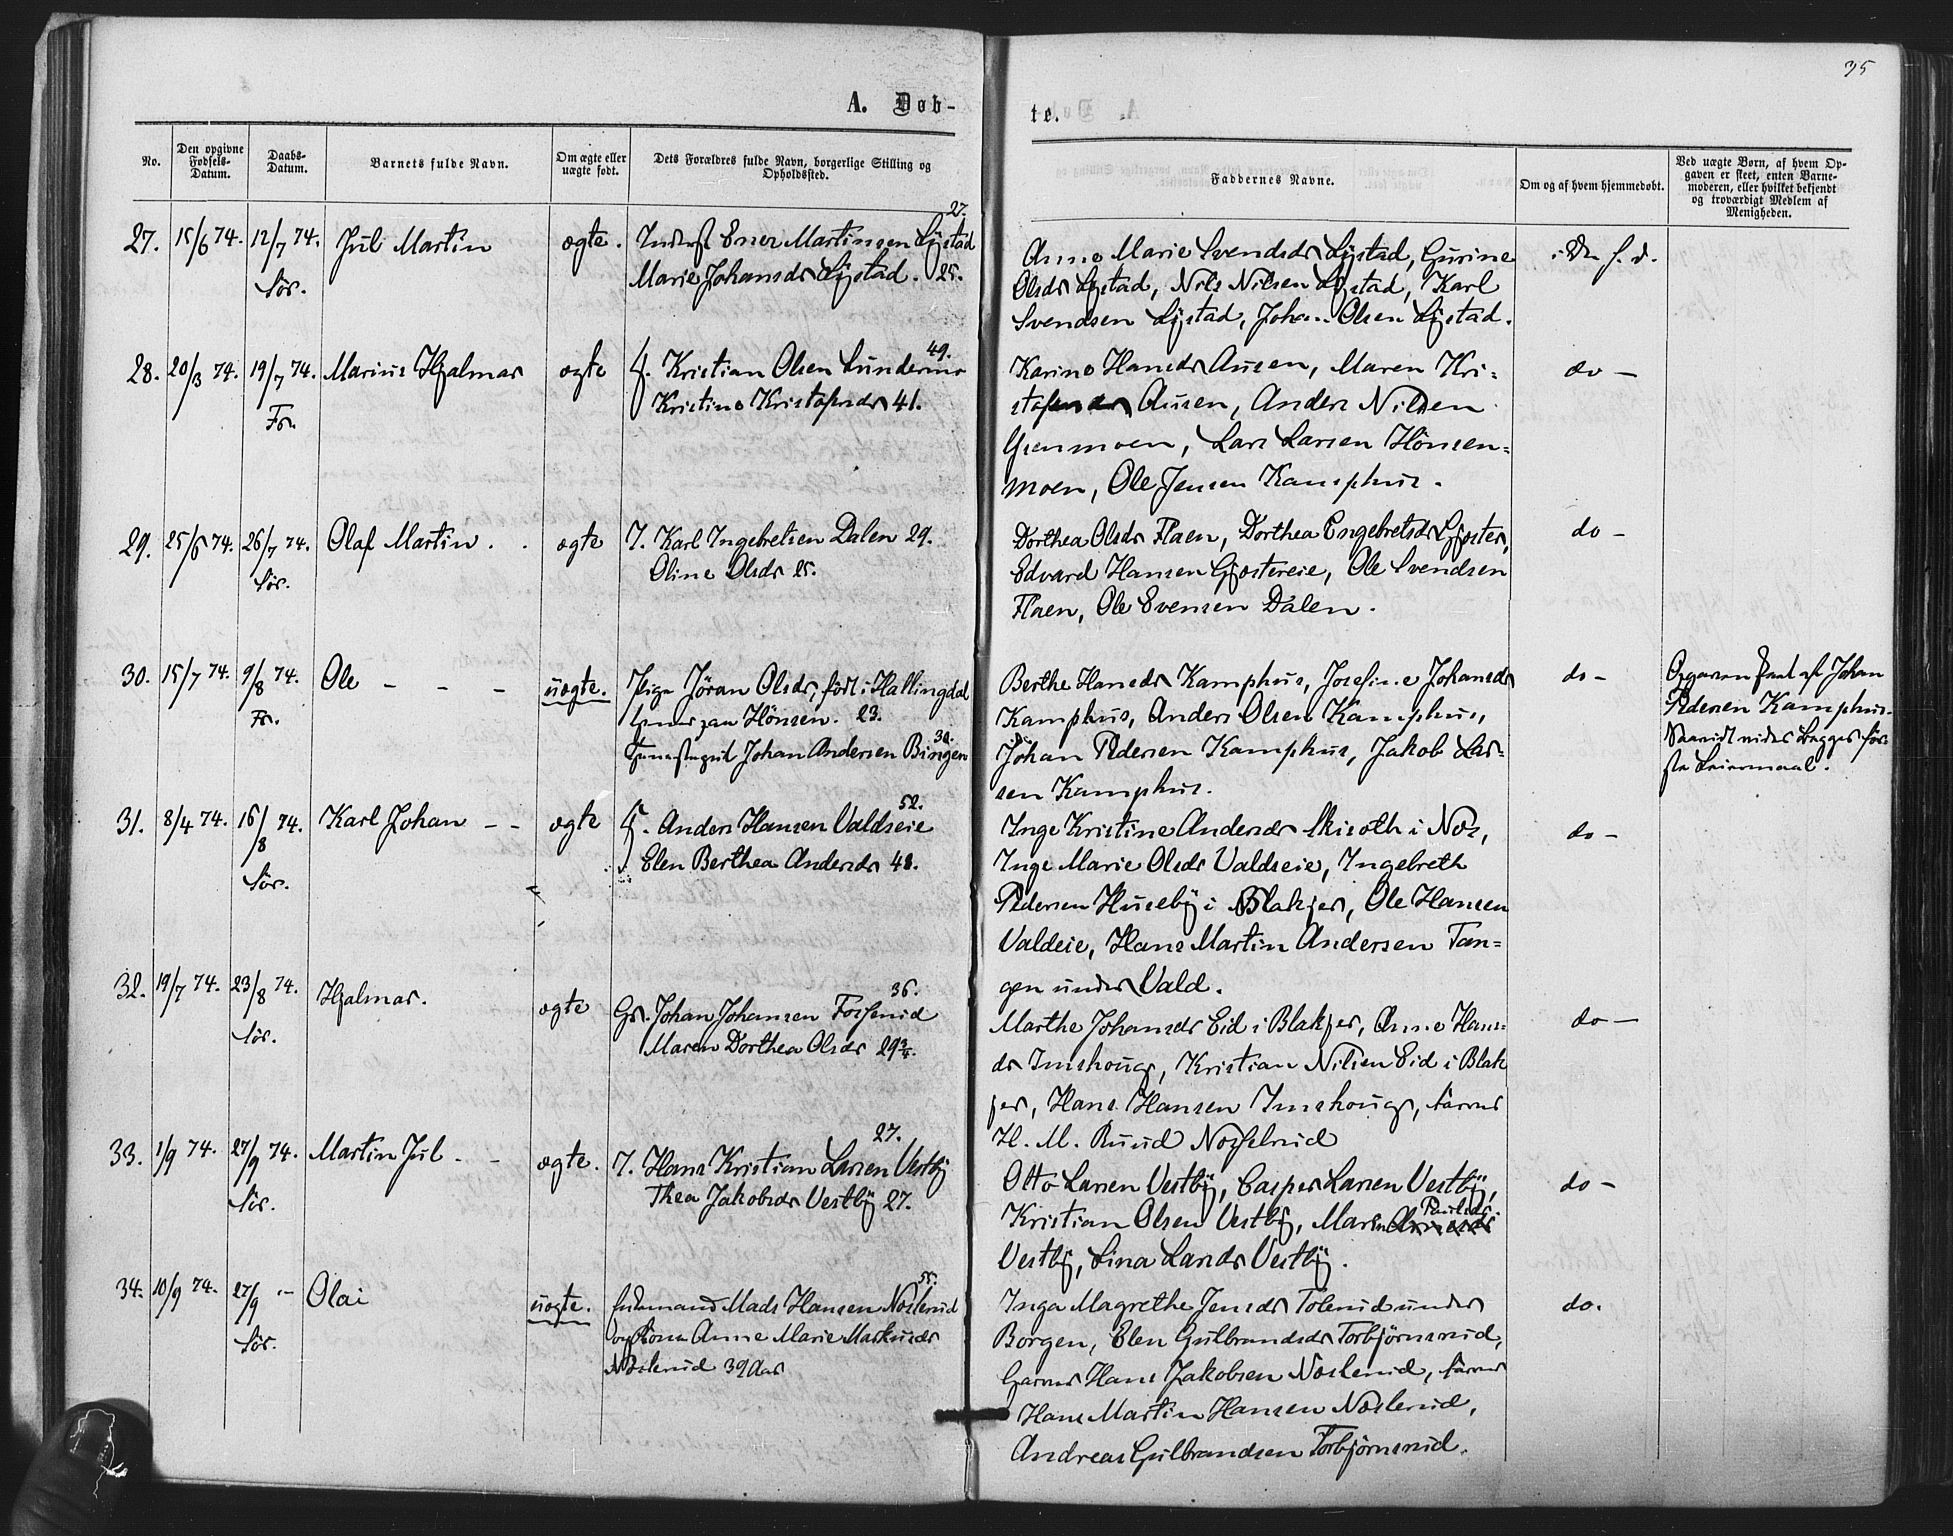 35
A. Døb-
te.
No.
Den opgivne Fødsels-Datum.
Daabs-Datum.
Barnets fulde Navn.
Om ægte eller uægte født.
Dets Forældres fulde Navn, borgerlige Stilling og Opholdssted.
Faddernes Navne.
Om og af hvem hjemmedøbt.
Ved uægte Børn, af hvem Op-
gaven er skeet, enten Barne-
moderen, eller hvilket bekjendt
og troværdigt Medlem af
Menigheden.
27. 15/6 74. 12/7 74. Sør. Jul Martin ægte. 27.
Inderst Ener Martinsen Lystad
Marie Johansdr Lystad. 25.
Anne Marie Svendsdr Lystad, Gurine
Olsdr Lystad, Nils Nilsen Lystad, Karl
Svendsen Lystad, Johan Olsen Lystad.
28. 20/3 74. 19/7 74. Fr. Marius Hjalmar ægte 49.
Kristian Olsen Lundermo
Kristine Kristofersdr 41.
Karine Hansdr Ausen, Maren Kri-
Ausen, Anders Nilsen
Grenmoen, Lars Larsen Hønsen-
moen, Ole Jensen Kamphus.
do —
29. 25/6 74. 26/7 74. Sør. Olaf Martin ægte
I. Karl Ingebretsen Dalen 29.
Oline Olsdr 25.
Dorthea Olsdr Flaen, Dorthea Engebretsdr Gjøster,
Edvard Hansen Gjøstereie, Ole Svendsen
Flaen, Ole Evensen Dalen.
do —
30. 15/7 74. 9/8 74. Fr. Ole - - - uægte.
Pige Jøran Olsdr, født i Hallingdal
paa Hønsen. 23.
30.
Johan Andersen Bingen
Berthe Hansdr Kamphus, Josefine Johansdr
Kamphus, Anders Olsen Kamphus,
Johan Pedersen Kamphus, Jakob Lar-
sen Kamphus.
do —
Opgaven af Johan
Pedersen Kamphus.
Saavidt vides Begges før-
ste Leiermaal.
31. 8/4 74. 16/8 74. Sør. Karl Johan - - ægte 52.
Anders Hansen Valdseie
Elen Berthea Andersdr 48.
Inge Kristine Andersdr i Næs,
Inge Marie Olsdr Valdseie, Ingebreth
Pedersen Huseby i Blakjer, Ole Hansen
Valdeie, Hans Martin Andersen Tan-
gen under Vald.
do —
32. 19/7 74. 23/8 74. Sør. Hjalmar. ægte 36.
Gr. Johan Johansen Fosserud
Maren Dorthea Olsdr 29¾.
Marthe Johansdr Eid i Blakjer, Anne Hans-
dr Imshoug, Kristian Nilsen Eid i Blak
jer, Hans Hansen Imshoug, Lærer
H. M. Ruud
do —
33. 1/9 74. 27/9 74. Sør. Martin Jul - - ægte. 27.
I. Hans Kristian Larsen Vestby
Thea Jakobsdr Vestby 27.
Otto Larsen Vestby, Casper Larsen Vestby,
Kristian Olsen Vestby, Maren
Vestby, Lina Larsdr Vestby.
do —
34. 10/9 74. 27/9 - Sør. Olai uægte. 55.
Mads Hansen Næslerud
og Kone Anne Marie Markusdr
Næslerud 39 Aar
Inga Magrethe Jensdr Tolerud under
Borgen, Elen Gulbrandsdr Torbjørnsrud,
Hans Jakobsen Næslerud,
Hans Martin Hansen Næslerud,
Andreas Gulbrandsen Torbjørnsrud.
do.